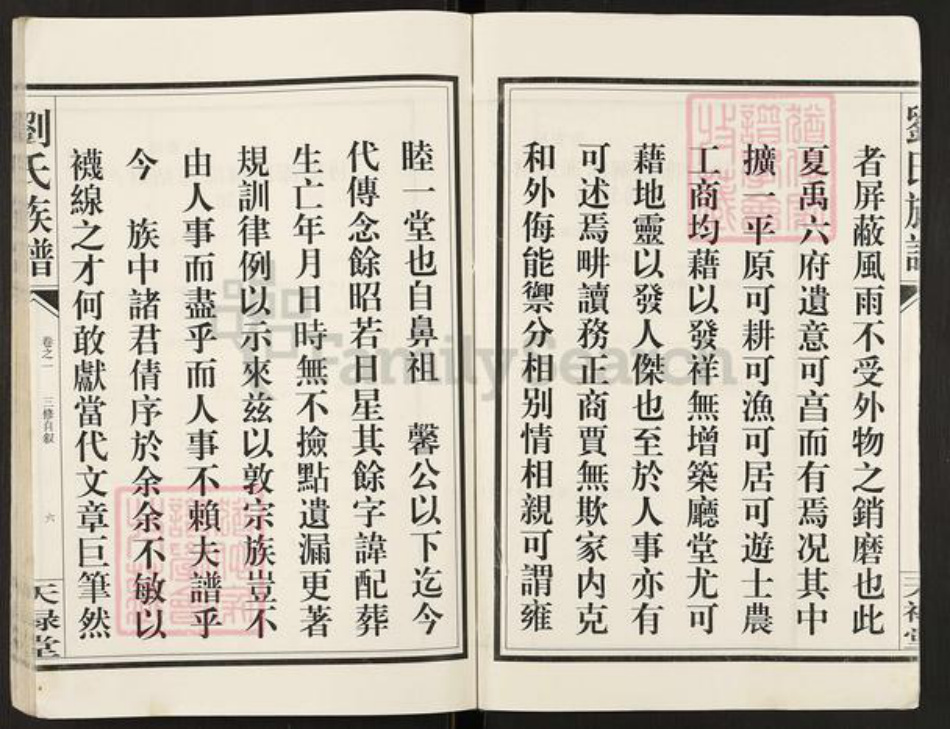 者屏蔽風雨不受外物之銷磨也此
夏禹六府遺意可亯而有焉况其中
擴一平原可耕可漁可居可遊士農
工商均藉以發祥無增築廳堂尤可
藉地靈以發人傑也至於人事亦有
可述焉畊讀務正商賈無欺家内克
和外侮能禦分相别情相親可謂雍
睦一堂也自鼻祖 馨公以下迄今
代傳念餘昭若日星其餘字諱配葬
生亡年月日時無不撿點遺漏更著
規訓律例以示來兹以敦宗族豈不
由人事而盡乎而人事不賴夫譜乎
今 族中諸君倩序於余余不敏以
襪線之才何敢獻當代文章巨筆然
劉氏族譜
卷之一 三修自叙 六
天禄堂
FamilySearch